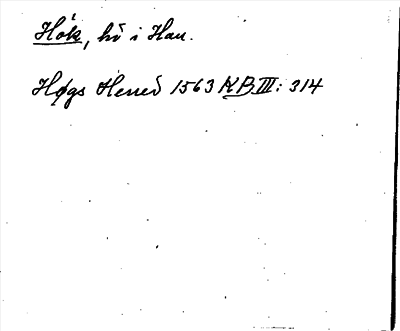 Hök, hd i Hall.
Høgs Herred 1563 KB III: 314